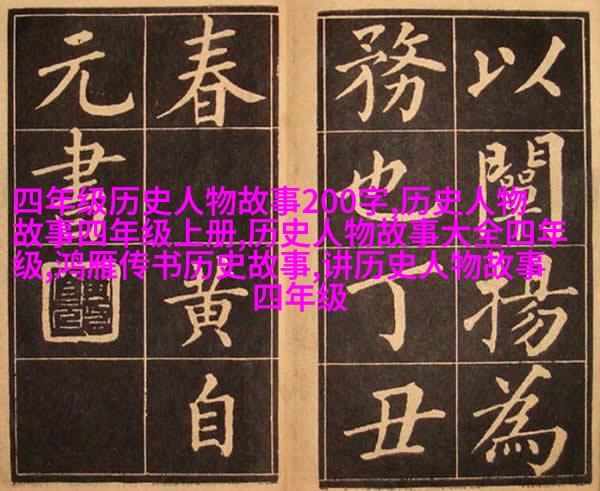 以闡揚為
務也丁丑
春黃自
元書
四年级历史人物故事200字,历史人物
故事四年级上册,历史人物故事大全四年
级,鸿雁传书历史故事,讲历史人物故事
四年级